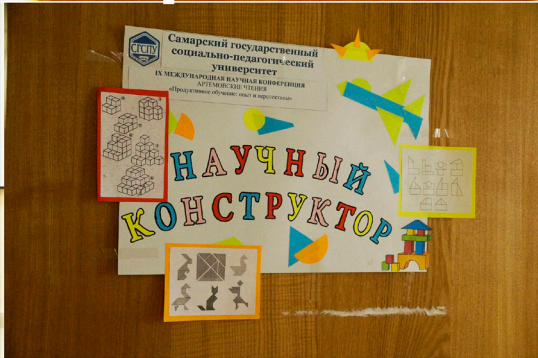 СГСПУ
Самарский государственный
социально-педагогический
университет
IX МЕЖДУНАРОДНАЯ НАУЧНАЯ КОНФЕРЕНЦИЯ
АРТЕМОВСКИЕ ЧТЕНИЯ
«Продуктивное обучение: опыт и перспективы»
НАУЧНЫЙ
КОНСТРУКТОР